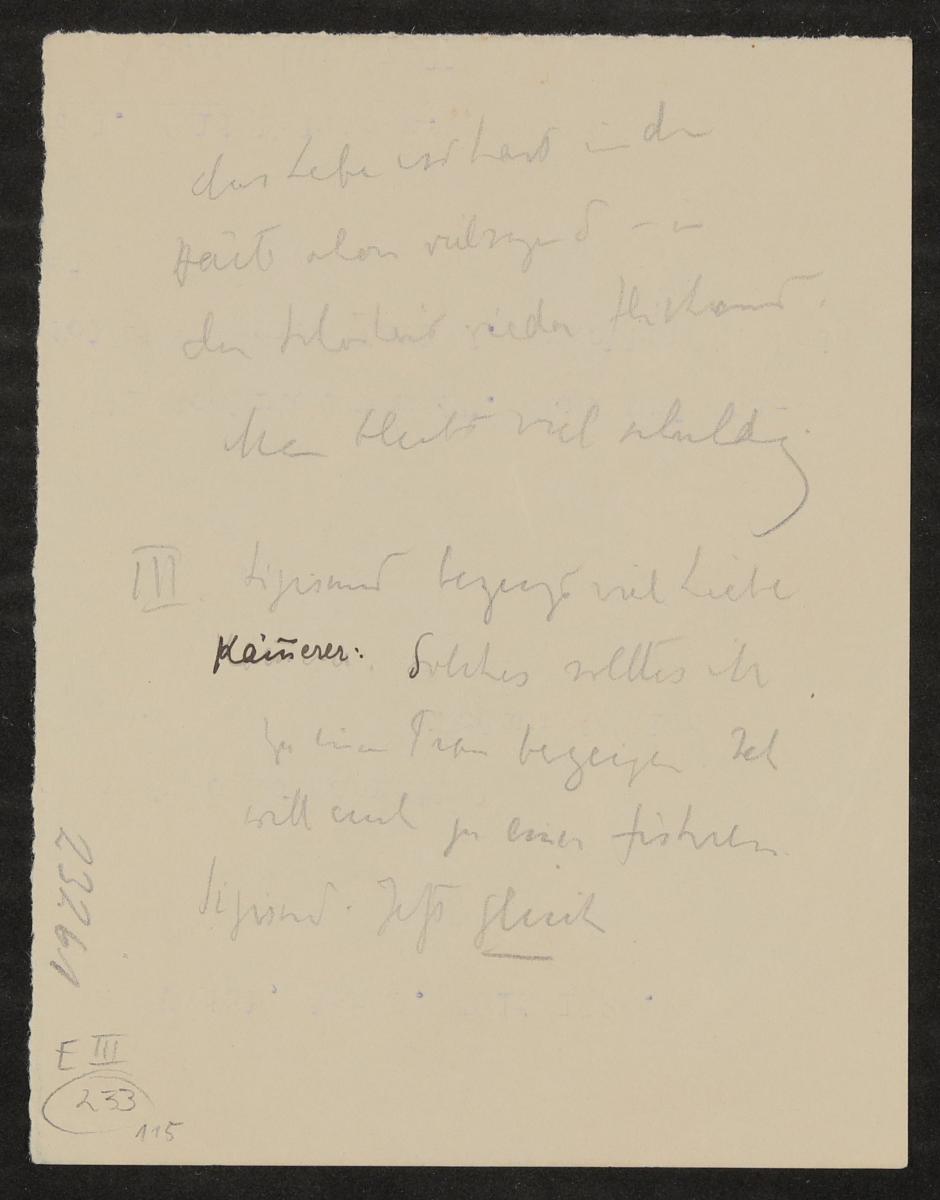 das Leben ist hart in der
Härte aber vielsagend – in
der Schönheit wieder
Man bleibt viel schuldig
III Sigismund bezeugt viel Liebe
Kämerer: Solches solltes ihr
zu einer Frau bezeigen Ich
will euch zu einer führen.
Sigismund. Jetzt gleich
23261
E III
233
115